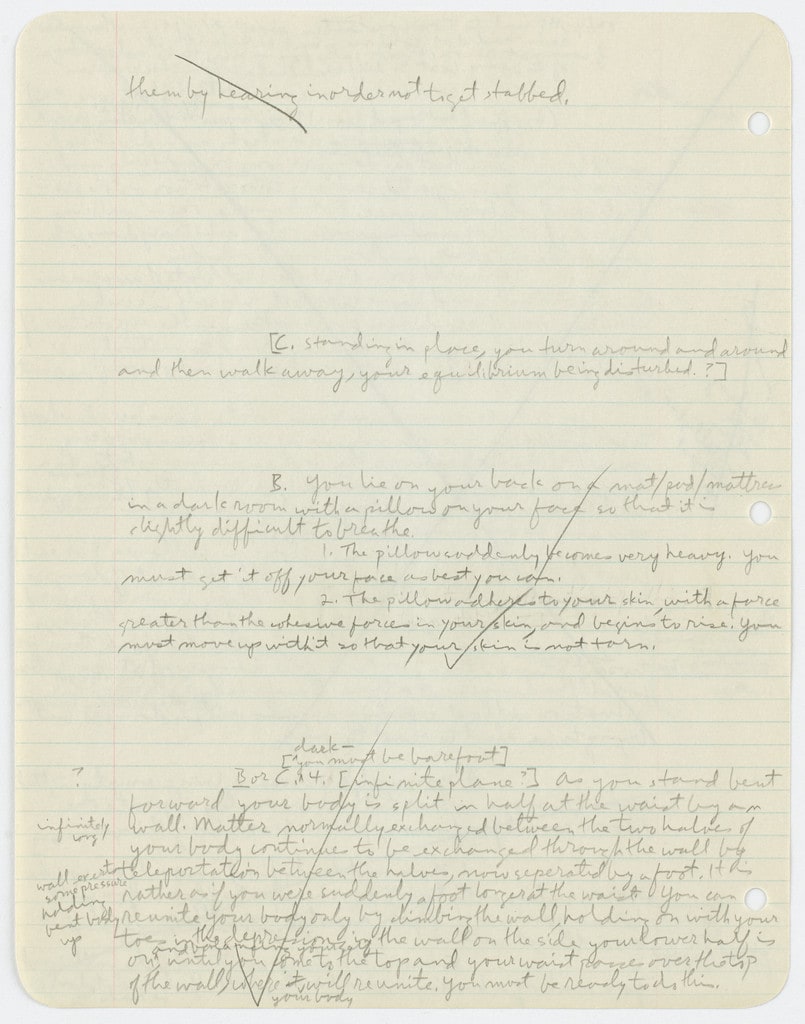 them by hearing in order not to get stabbed.
[C. standing in place, you turn around and around
and then walk away, your equilibrium being disturbed.?]
B. You lie on your back on a mat/pad/mattress
in a dark room with a pillow on your face so that it is
slightly difficult to breathe.
1. The pillow suddenly becomes very heavy. You
must get it off your face as best you can.
2. The pillow adheres to your skin, with a force
greater than the cohesive forces in your skin, and begins to rise. You
must move up with it so that your skin is not torn.
dark—
[you must be barefoot]
?
B or C. 4. [infinite plane?] As you stand bent
forward your body is split in half at the waist by an
infinitely
long
wall. Matter normally exchanged between the two halves of
your body continues to be exchanged through the wall by
wall exerts
some pressure
holding
bent body
up
teleportation between the halves, now seperated by a foot. It is
rather as if you were suddenly a foot longer at the waist. You can
reunite your body only by climbing the wall, holding on with your
toes in the depressions in the wall on the side your lower half is
on, until you come to the top and your waist passes over the top
of the wall, where it will reunite. You must be ready to do this.
your body